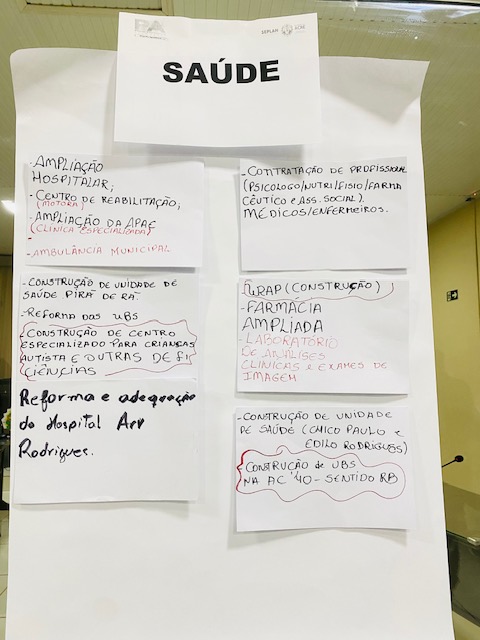 SEPLAN
ACRE
SAÚDE
- AMPLIAÇÃO
HOSPITALAR;
- CENTRO DE REABILITAÇÃO;
(MOTORA)
- AMPLIAÇÃO DA APAE
(CLÍNICA ESPECIALIZADA)
- AMBULÂNCIA MUNICIPAL
- CONSTRUÇÃO DE UNIDADE DE
SAÚDE PIRA DE RÃ.
- REFORMA DAS UBS
- CONSTRUÇÃO DE CENTRO
ESPECIALIZADO PARA CRIANÇAS
AUTISTA E OUTRAS DEFI
CIÊNCIAS
Reforma e adequação
do Hospital Ary
Rodrigues.
- CONTRATAÇÃO DE PROFISSIONAL
(PSICOLOGO/NUTRI/FISIO/FARMA
CÊUTICO e ASS. SOCIAL).
MÉDICOS/ENFERMEIROS.
- URAP (CONSTRUÇÃO)
- FARMÁCIA
AMPLIADA
- LABORATÓRIO
DE ANÁLISES
CLÍNICAS e EXAMES DE
IMAGEM
- CONSTRUÇÃO DE UNIDADE
DE SAÚDE (CHICO PAULO e
EDILO RODRIGUES)
- CONSTRUÇÃO de UBS
NA AC 40 - SENTIDO RB